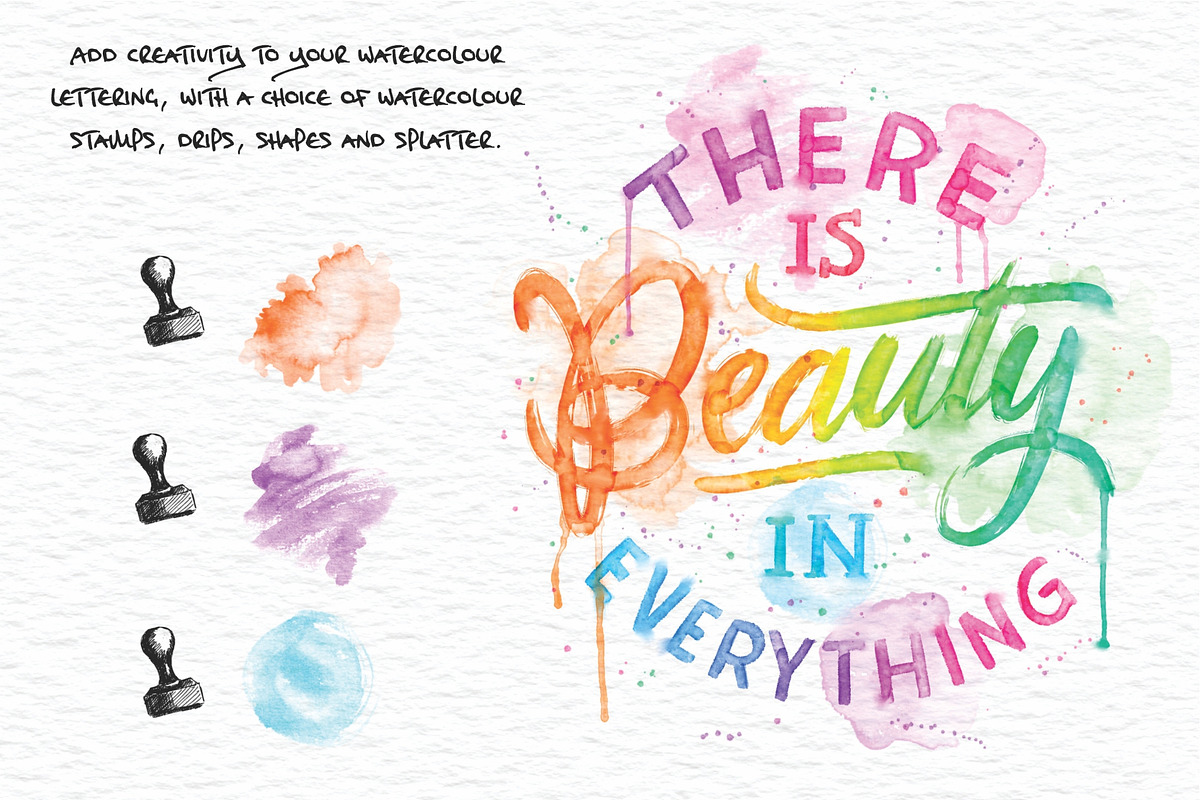 ADD CREATIVITY TO YOUR WATERCOLOUR
LETTERING, WITH A CHOICE OF WATERCOLOUR
STAMPS, DRIPS, SHAPES AND SPLATTER.
THERE
IS
Beauty
IN
EVERYTHING